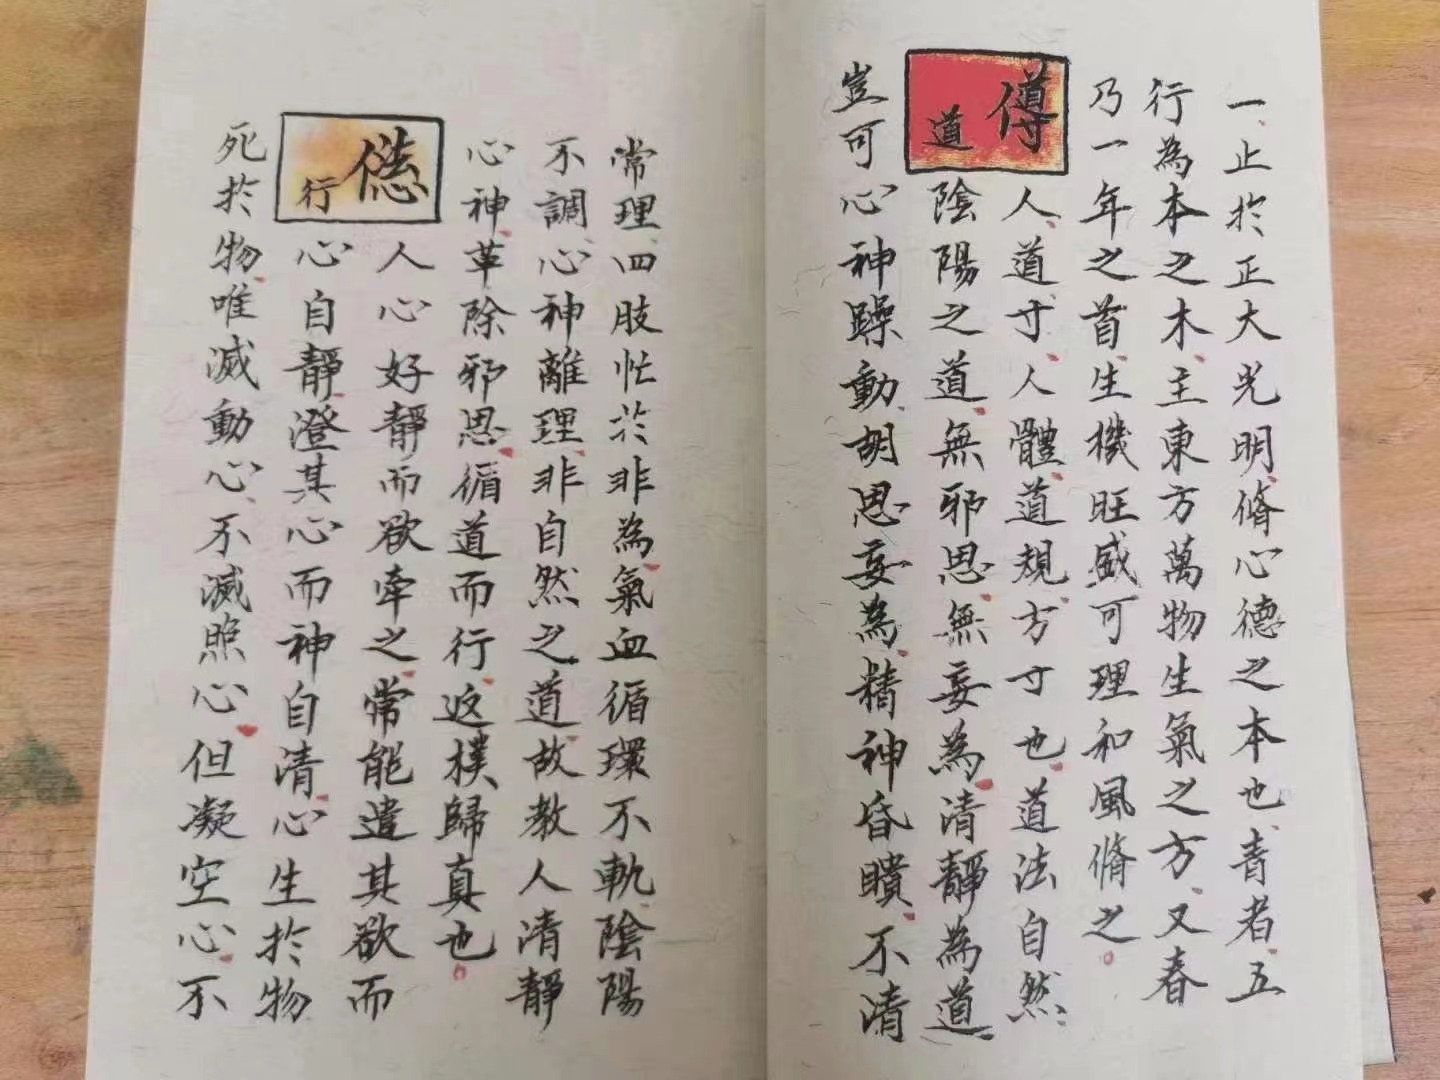 一、止於正大光明、脩心德之本也、青者、五
行為本之木、主東方萬物生氣之方、又春
乃一年之首、生機旺盛可理和風脩之。
道
人、道寸、人體、道規、方寸也、道法自然
陰陽之道、無邪思、無妄為、清靜為道
豈可心神躁動、胡思妄為、精神昏瞶、不清
常理、四肢忙於非為、氣血循環不軌、陰陽
不調、心神離理、非自然之道、故教人清靜
心神、革除邪思、循道而行、返樸歸真也。
行
人心好靜而欲牽之、常能遣其欲而
心自靜、澄其心而神自清、心生於物
死於物、唯滅動心、不滅照心、但凝空心、不